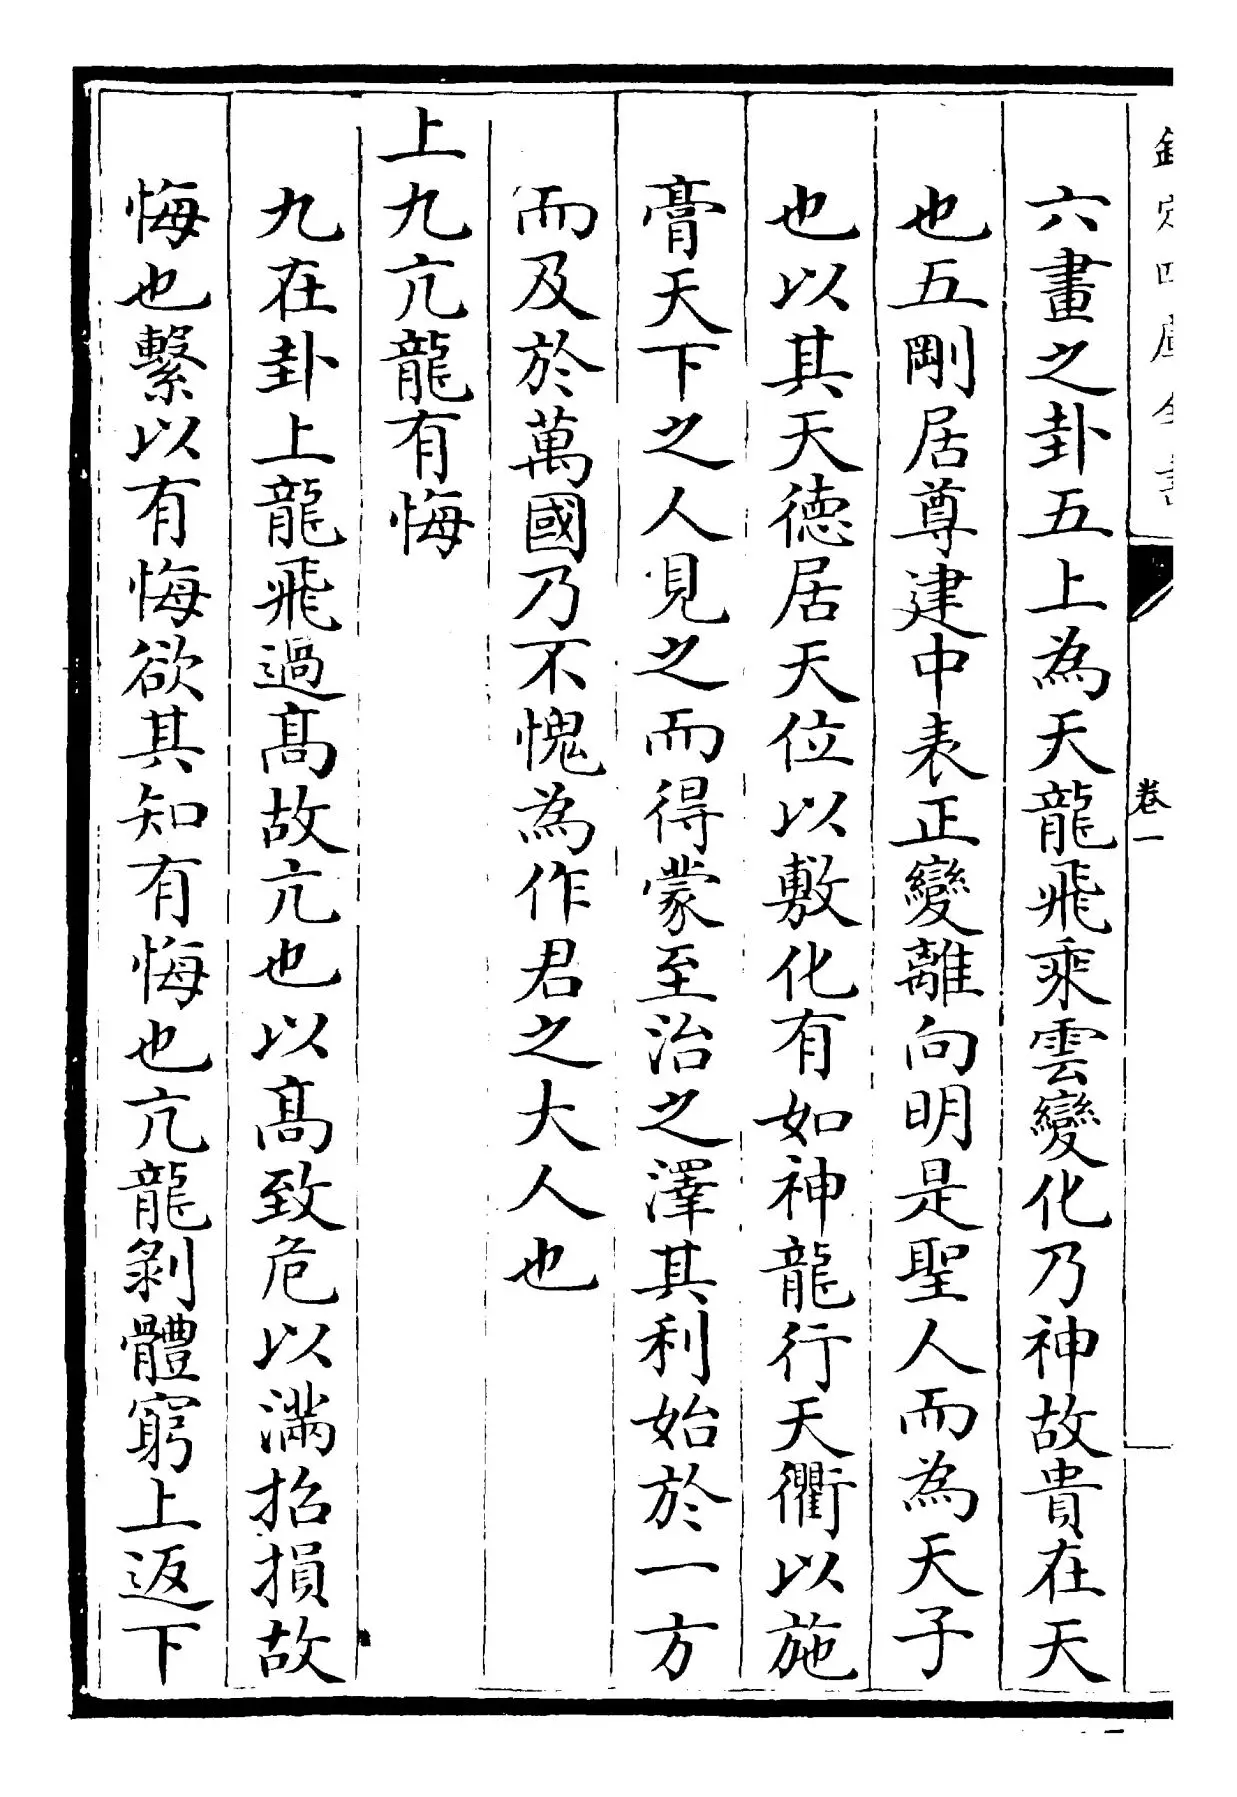 欽定四庫全書
卷一
六畫之卦五上為天龍飛乘雲變化乃神故貴在天
也五剛居尊建中表正變離向明是聖人而為天子
也以其天德居天位以敷化有如神龍行天衢以施
膏天下之人見之而得蒙至治之澤其利始於一方
而及於萬國乃不愧為作君之大人也
上九亢龍有悔
九在卦上龍飛過髙故亢也以髙致危以滿招損故
悔也繫以有悔欲其知有悔也亢龍剝體窮上返下